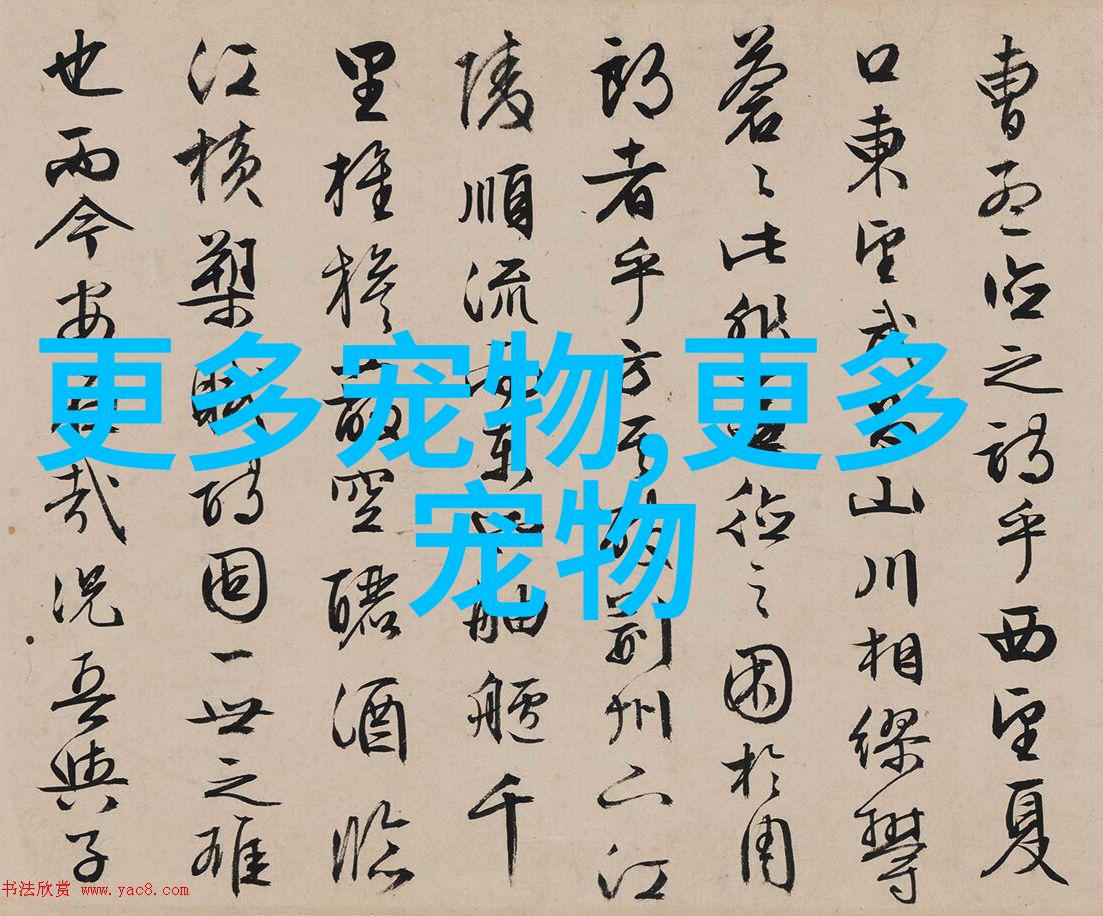 曹孟德之詩乎西望夏
口東望武昌山川相繆鬱
蒼〻此非孟德之困於周
郎者乎方其破荊州下江
陵順流而東也舳艫千
里旌旗蔽空釃酒臨
江橫槊賦詩固一世之雄
也而今安在哉況吾與子
更多宠物,更多
宠物
书法欣赏 www.yac8.com